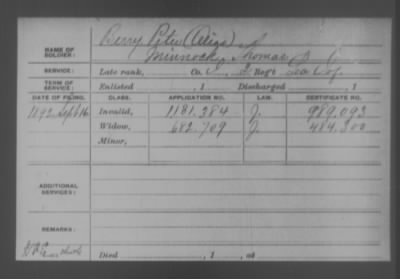 Berry, Peter (Alias)
NAME OF SOLDIER:
Minnock, Thomas
SERVICE: Late rank, Co. Reg't
TERM OF SERVICE: Enlisted , 1 Discharged , 1
DATE OF FILING. CLASS. APPLICATION NO. LAW. CERTIFICATE NO.
1892 Sept 16 Invalid, 1181.384 J. 989.093
Widow, 682.709 J. 484.300
Minor,
ADDITIONAL SERVICES:
REMARKS:
Died , 1 , at